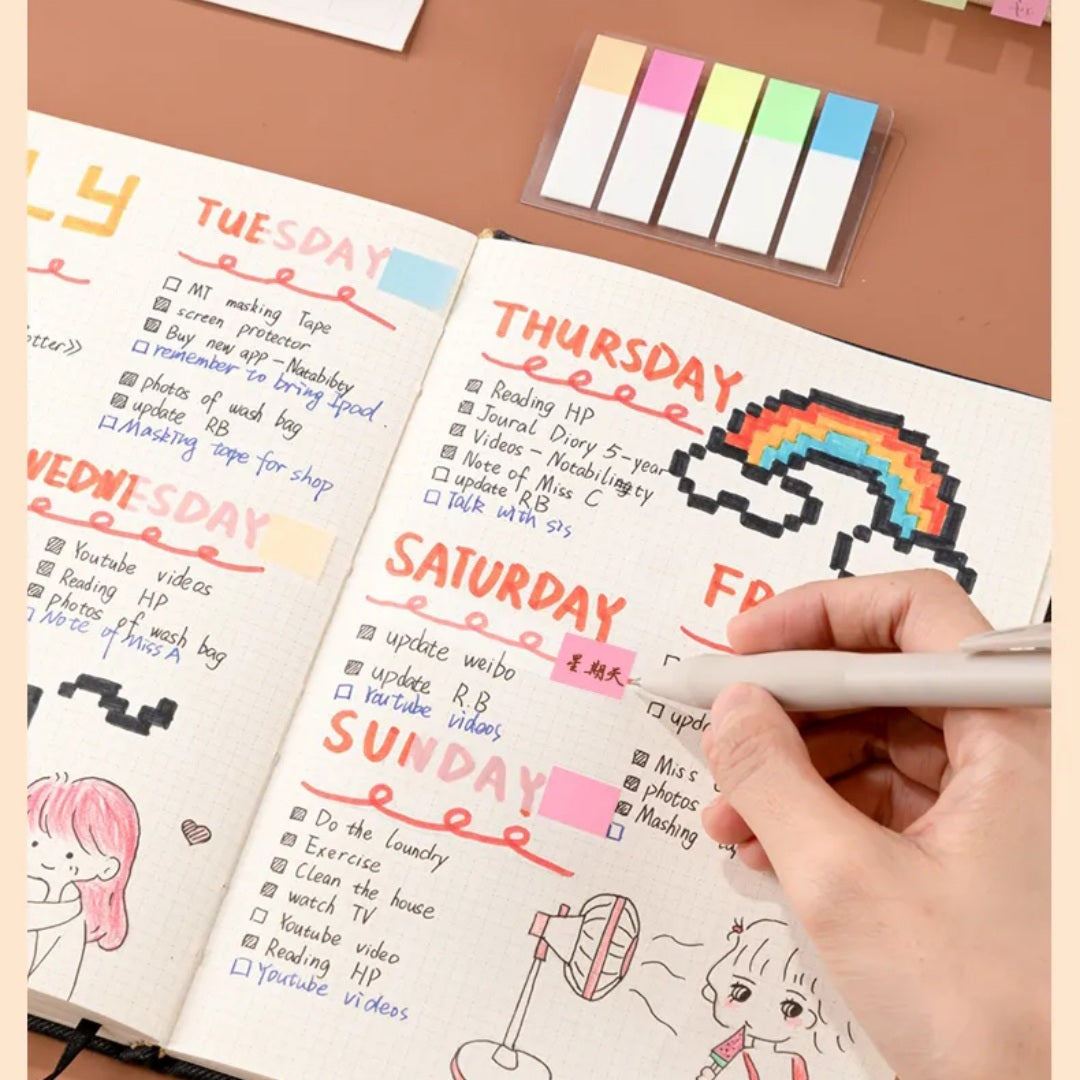 LY
TUESDAY
MT masking Tape
screen protector
Buy new app - Notabibty
remember to bring Ipad.
photos of wash bag
update RB
Masking tape for shop
otter》
WEDNESDAY
Youtube videos
Reading HP
Photos of wash bag
Note of Miss A
THURSDAY
Reading HP
Joural Diory 5-year
Videos - Notability
Note of Miss C
update RB
Talk with sis
SATURDAY
update weibo
星期天
update R.B
Youtube videos
SUNDAY
Do the loundry
Exercise
Clean the house
watch TV
Youtube video
Reading HP
Youtube videos
FR
upda
Miss
photos
Mashing